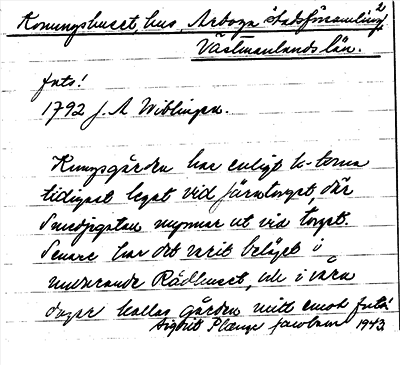 Konungshuset, hus, Arboga stadsförsamling
Västmanlands län.
foto!
1792 J. A Wiblingen.
Kungsgården har enligt k-terna
tidigast legat vid Järntorget, där
Smedjegatan mynnar ut vid torget.
Senare har det varit beläget i
nuvarande Rådhuset, och i våra
dagar kallas gården mitt emot foto!
Sigbrit Plænge Jacobson 1943